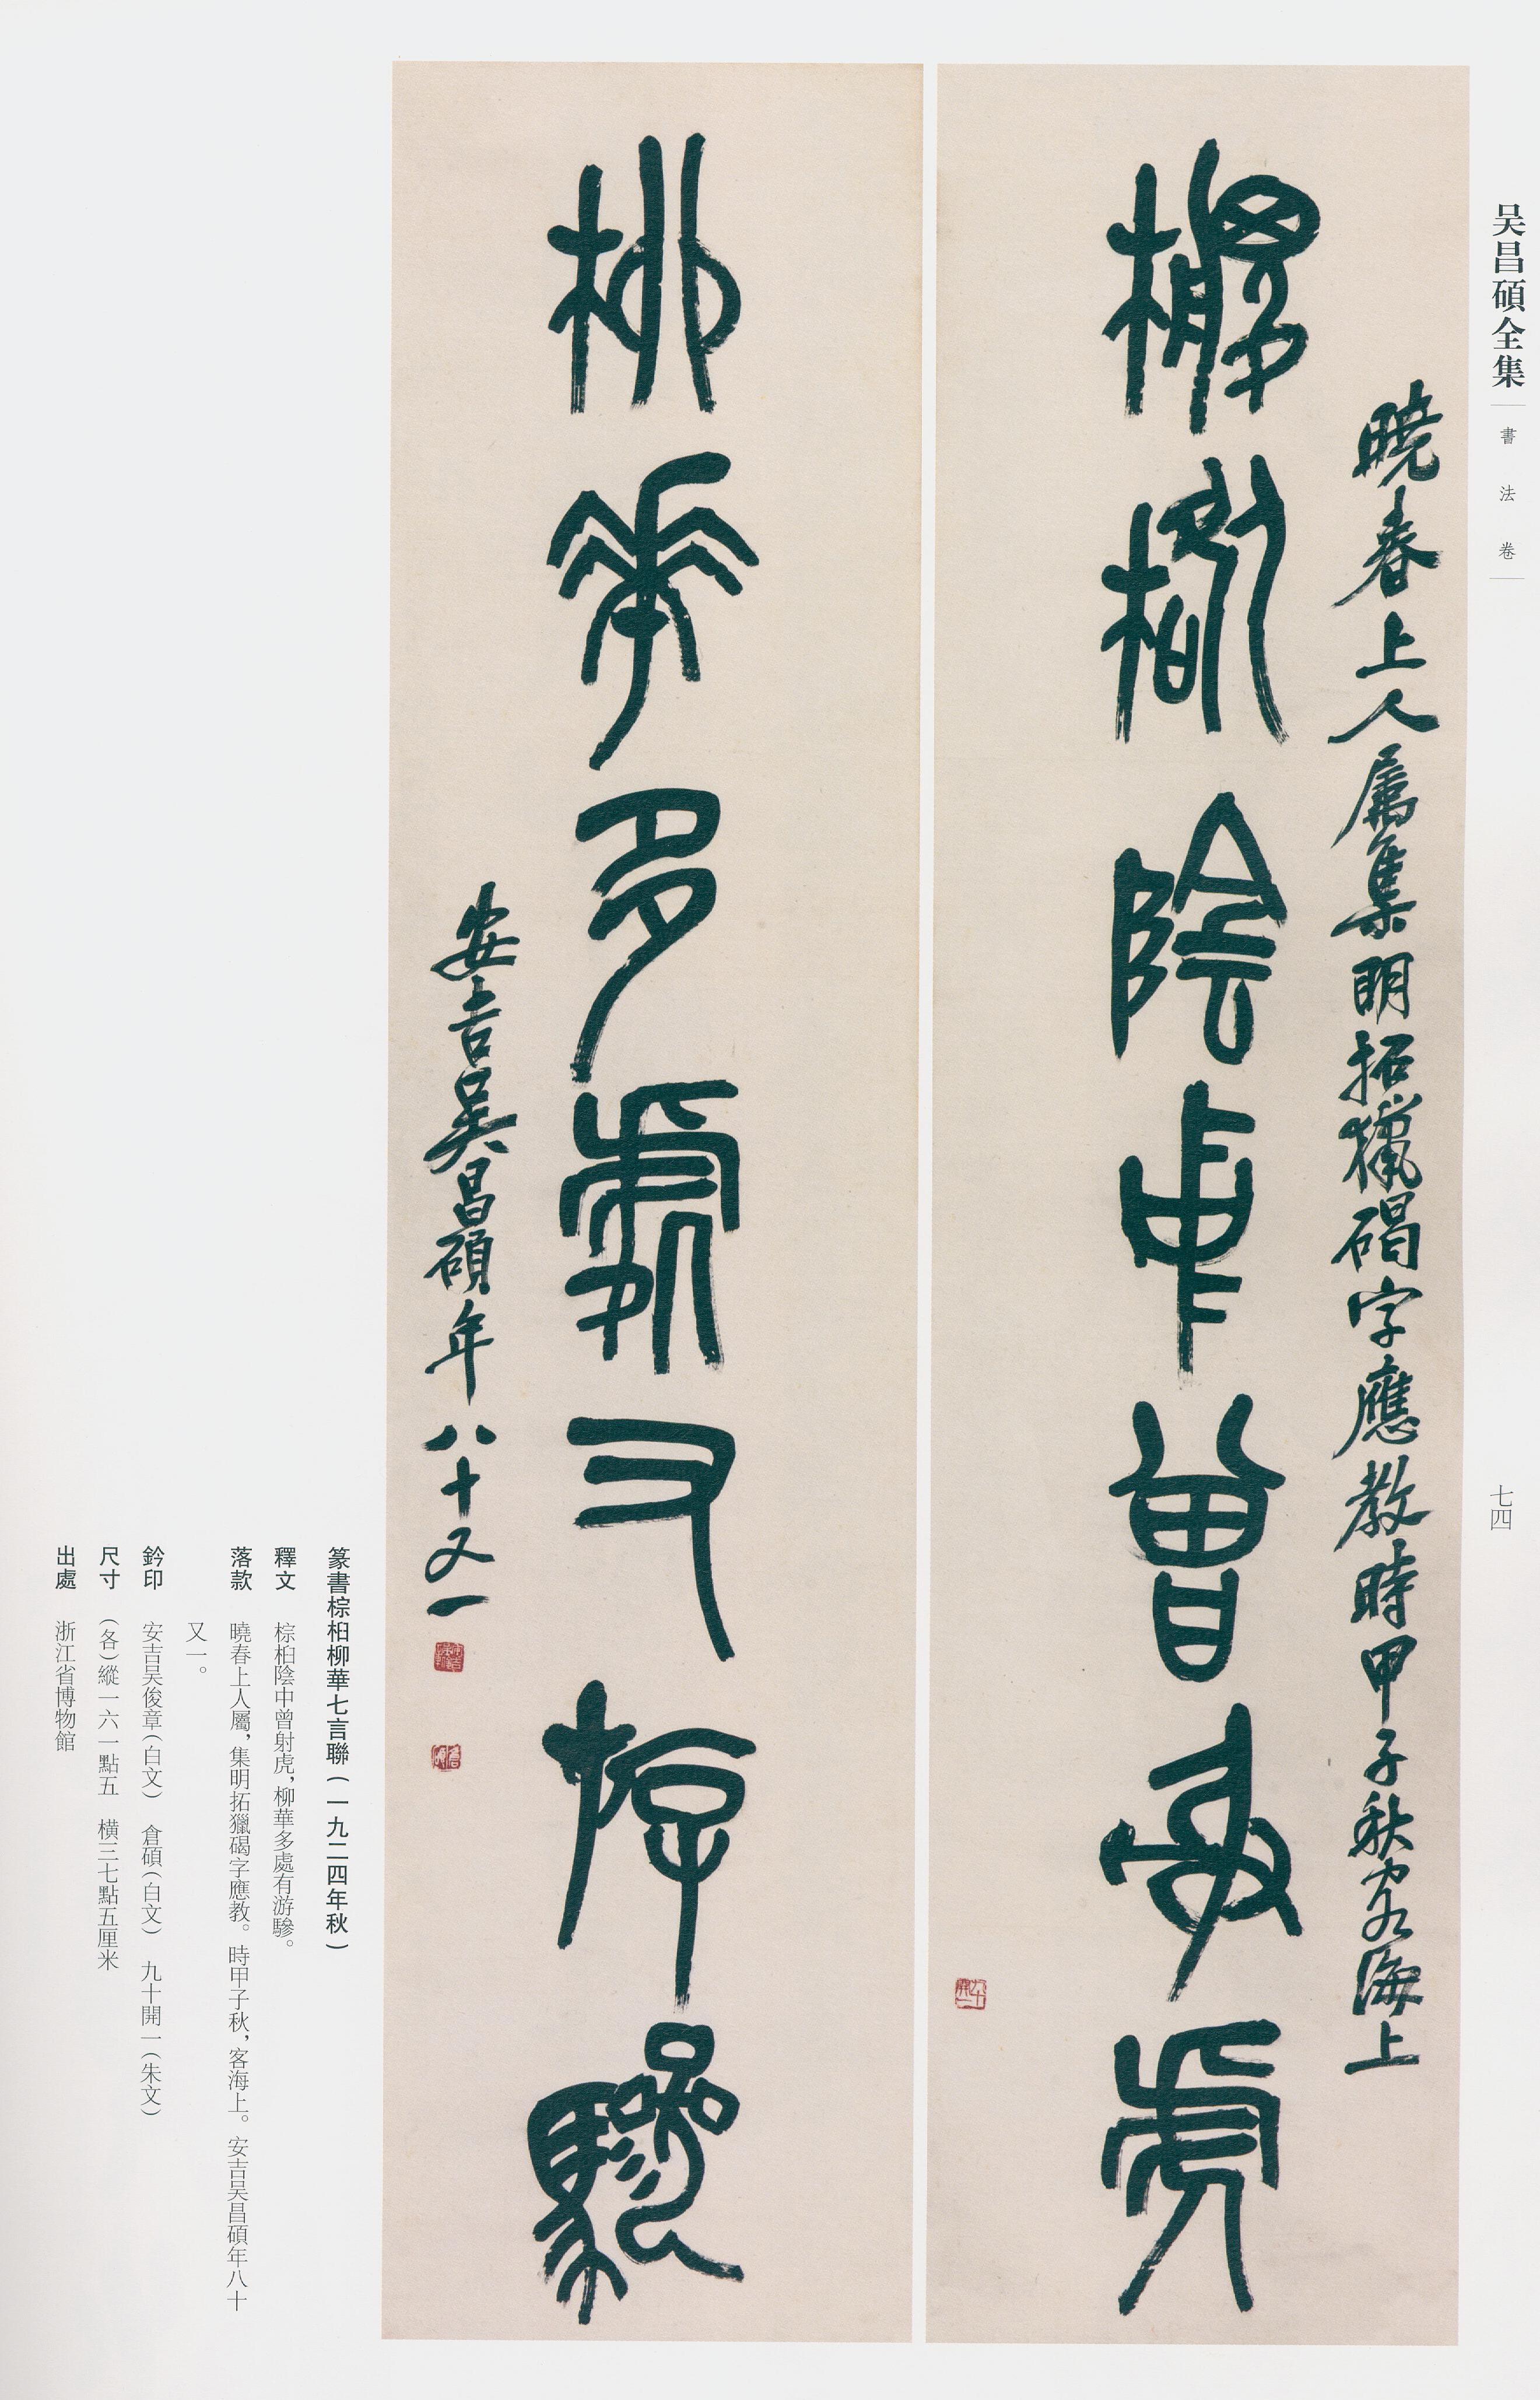 吴昌碩全集
書法卷
七四
曉春上人屬集明拓獵碣字應教時甲子秋客海上
棕桕陰中曾射虎
柳華多處有游驂
安吉吴昌碩年八十又一
篆書棕桕柳華七言聯(一九二四年秋)
釋文 棕桕陰中曾射虎，柳華多處有游驂。
落款 曉春上人屬，集明拓獵碣字應教。時甲子秋，客海上。安吉吴昌碩年八十
又一。
鈐印 安吉吴俊章(白文) 倉碩(白文) 九十開一(朱文)
尺寸 (各)縱一六一點五 横三七點五厘米
出處 浙江省博物館